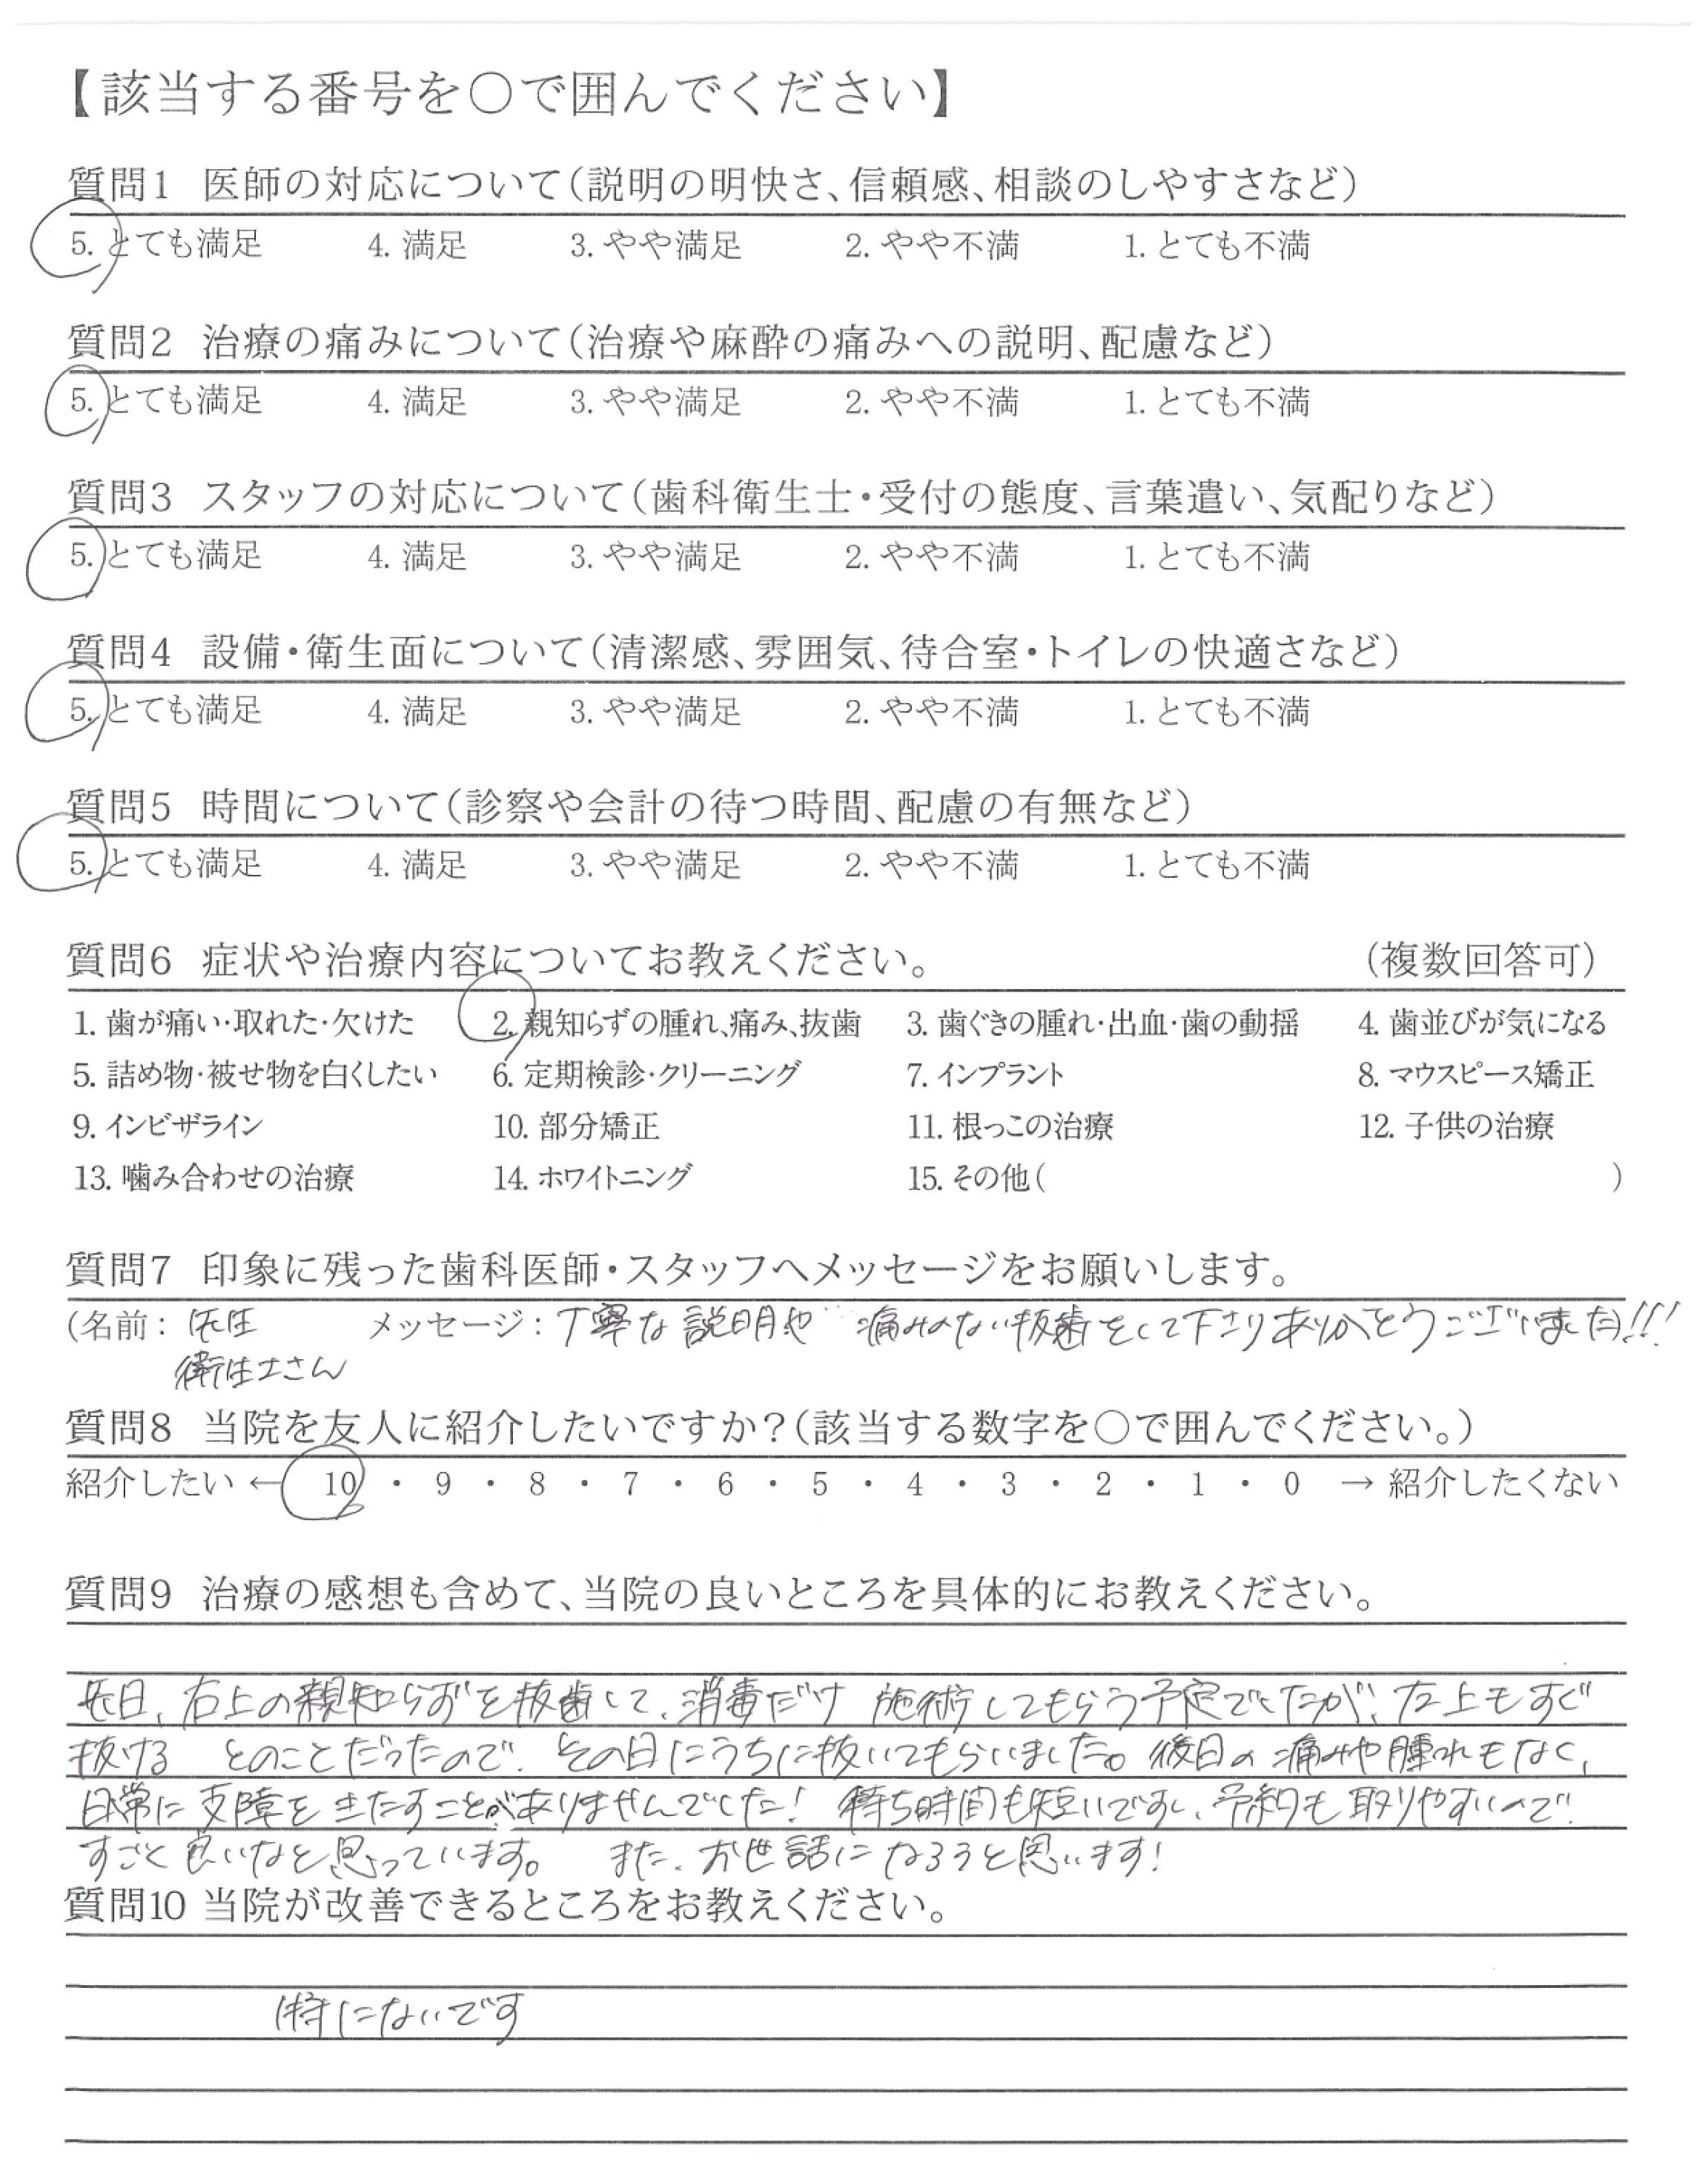 【該当する番号を○で囲んでください】
質問1 医師の対応について(説明の明快さ、信頼感、相談のしやすさなど)
5. とても満足 4. 満足 3. やや満足 2. やや不満 1. とても不満
質問2 治療の痛みについて(治療や麻酔の痛みへの説明、配慮など)
5. とても満足 4. 満足 3. やや満足 2. やや不満 1. とても不満
質問3 スタッフの対応について(歯科衛生士・受付の態度、言葉遣い、気配りなど)
5. とても満足 4. 満足 3. やや満足 2. やや不満 1. とても不満
質問4 設備・衛生面について(清潔感、雰囲気、待合室・トイレの快適さなど)
5. とても満足 4. 満足 3. やや満足 2. やや不満 1. とても不満
質問5 時間について(診察や会計の待つ時間、配慮の有無など)
5. とても満足 4. 満足 3. やや満足 2. やや不満 1. とても不満
質問6 症状や治療内容についてお教えください。 (複数回答可)
1. 歯が痛い・取れた・欠けた 2. 親知らずの腫れ、痛み、抜歯 3. 歯ぐきの腫れ・出血・歯の動揺 4. 歯並びが気になる
5. 詰め物・被せ物を白くしたい 6. 定期検診・クリーニング 7. インプラント 8. マウスピース矯正
9. インビザライン 10. 部分矯正 11. 根っこの治療 12. 子供の治療
13. 噛み合わせの治療 14. ホワイトニング 15. その他( )
質問7 印象に残った歯科医師・スタッフへメッセージをお願いします。
(名前: 先生 メッセージ: 丁寧な説明や 痛みのない抜歯をして下さりありがとうございました!!!
衛生士さん
質問8 当院を友人に紹介したいですか?(該当する数字を○で囲んでください。)
紹介したい ← 10 ・ 9 ・ 8 ・ 7 ・ 6 ・ 5 ・ 4 ・ 3 ・ 2 ・ 1 ・ 0 → 紹介したくない
質問9 治療の感想も含めて、当院の良いところを具体的にお教えください。
先日、右上の親知らずを抜歯して、消毒だけ 施術してもらう予定でしたが、左上もすぐ
抜ける とのことだったので、その日にうちに抜いてもらいました。後日の痛みや腫れもなく、
日常に支障をきたすことがありませんでした! 待ち時間も短いですし、予約も取りやすいので
すごく良いなと思っています。 また、お世話になろうと思います!
質問10 当院が改善できるところをお教えください。
特にないです